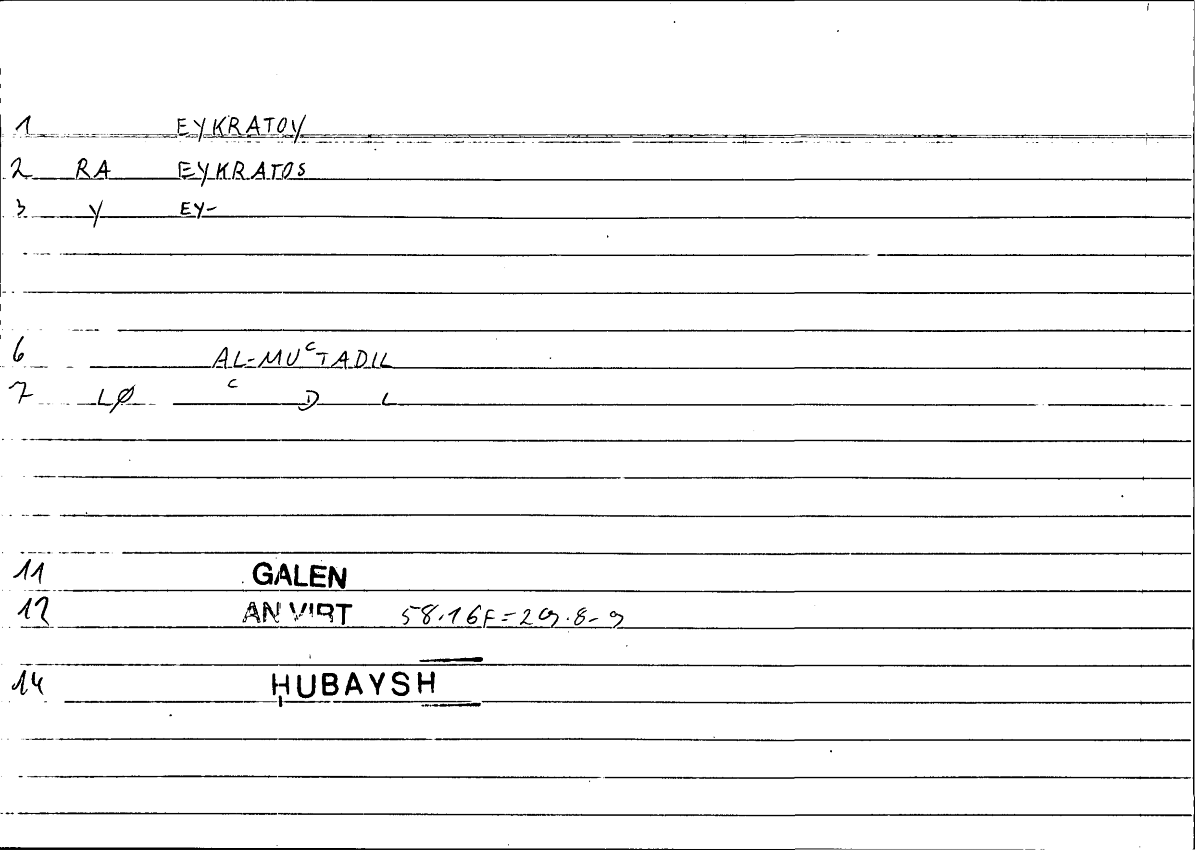 1 EYKRATOY
2 RA EYKRATOS
3 Y EY-
6 AL-MUᶜTADIL
7 LØ ᶜ D L
11 GALEN
12 AN VIRT 58.16F=29.8-9
14 HUBAYSH